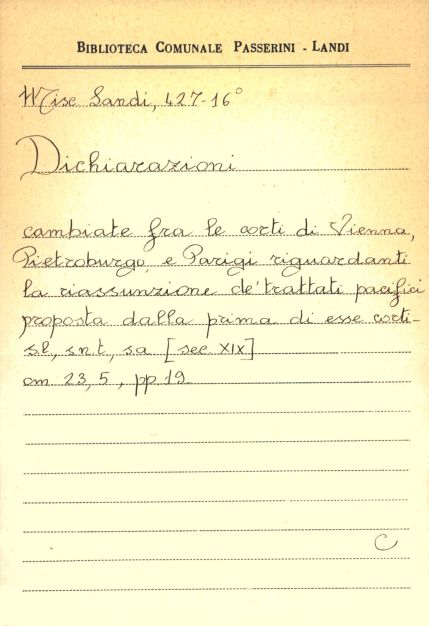 BIBLIOTECA COMUNALE PASSERINI - LANDI
Misc Landi, 427-16°
Dichiarazioni
cambiate fra le corti di Vienna,
Pietroburgo, e Parigi riguardanti
la riassunzione de' trattati pacifici
proposta dalla prima di esse corti-
s.l., s.n.t., s.a [sec XIX]
cm 23,5, pp 19.
C